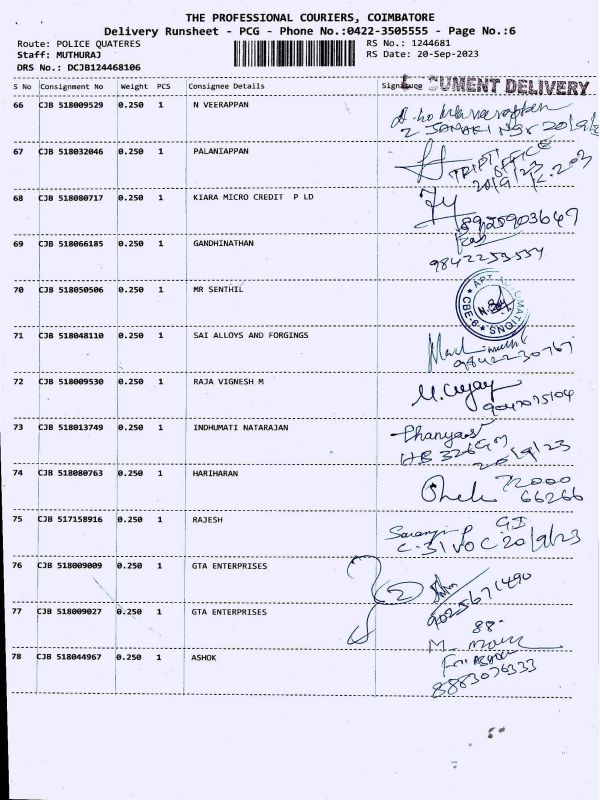 THE PROFESSIONAL COURIERS, COIMBATORE
Delivery Runsheet - PCG - Phone No.:0422-3505555 - Page No.:6
Route: POLICE QUATERES RS No.: 1244681
Staff: MUTHURAJ RS Date: 20-Sep-2023
DRS No.: DCJB124468106
CUMENT DELIVERY
S No Consignment No Weight PCS Consignee Details Signature
66 CJB 518009529 0.250 1 N VEERAPPAN
20/9/23
67 CJB 518032046 0.250 1 PALANIAPPAN
OFFICE
20/9/23
68 CJB 518080717 0.250 1 KIARA MICRO CREDIT P LD
8925903647
69 CJB 518066185 0.250 1 GANDHINATHAN
9842253554
70 CJB 518050506 0.250 1 MR SENTHIL
CBE-9
71 CJB 518048110 0.250 1 SAI ALLOYS AND FORGINGS
9842230767
72 CJB 518009530 0.250 1 RAJA VIGNESH M
73 CJB 518013749 0.250 1 INDHUMATI NATARAJAN
20/9/23
74 CJB 518080763 0.250 1 HARIHARAN
72000
66266
75 CJB 517158916 0.250 1 RAJESH
C-51 VOC 20/9/23
76 CJB 518009009 0.250 1 GTA ENTERPRISES
2
9025671490
77 CJB 518009027 0.250 1 GTA ENTERPRISES
88-
78 CJB 518044967 0.250 1 ASHOK
8883076333